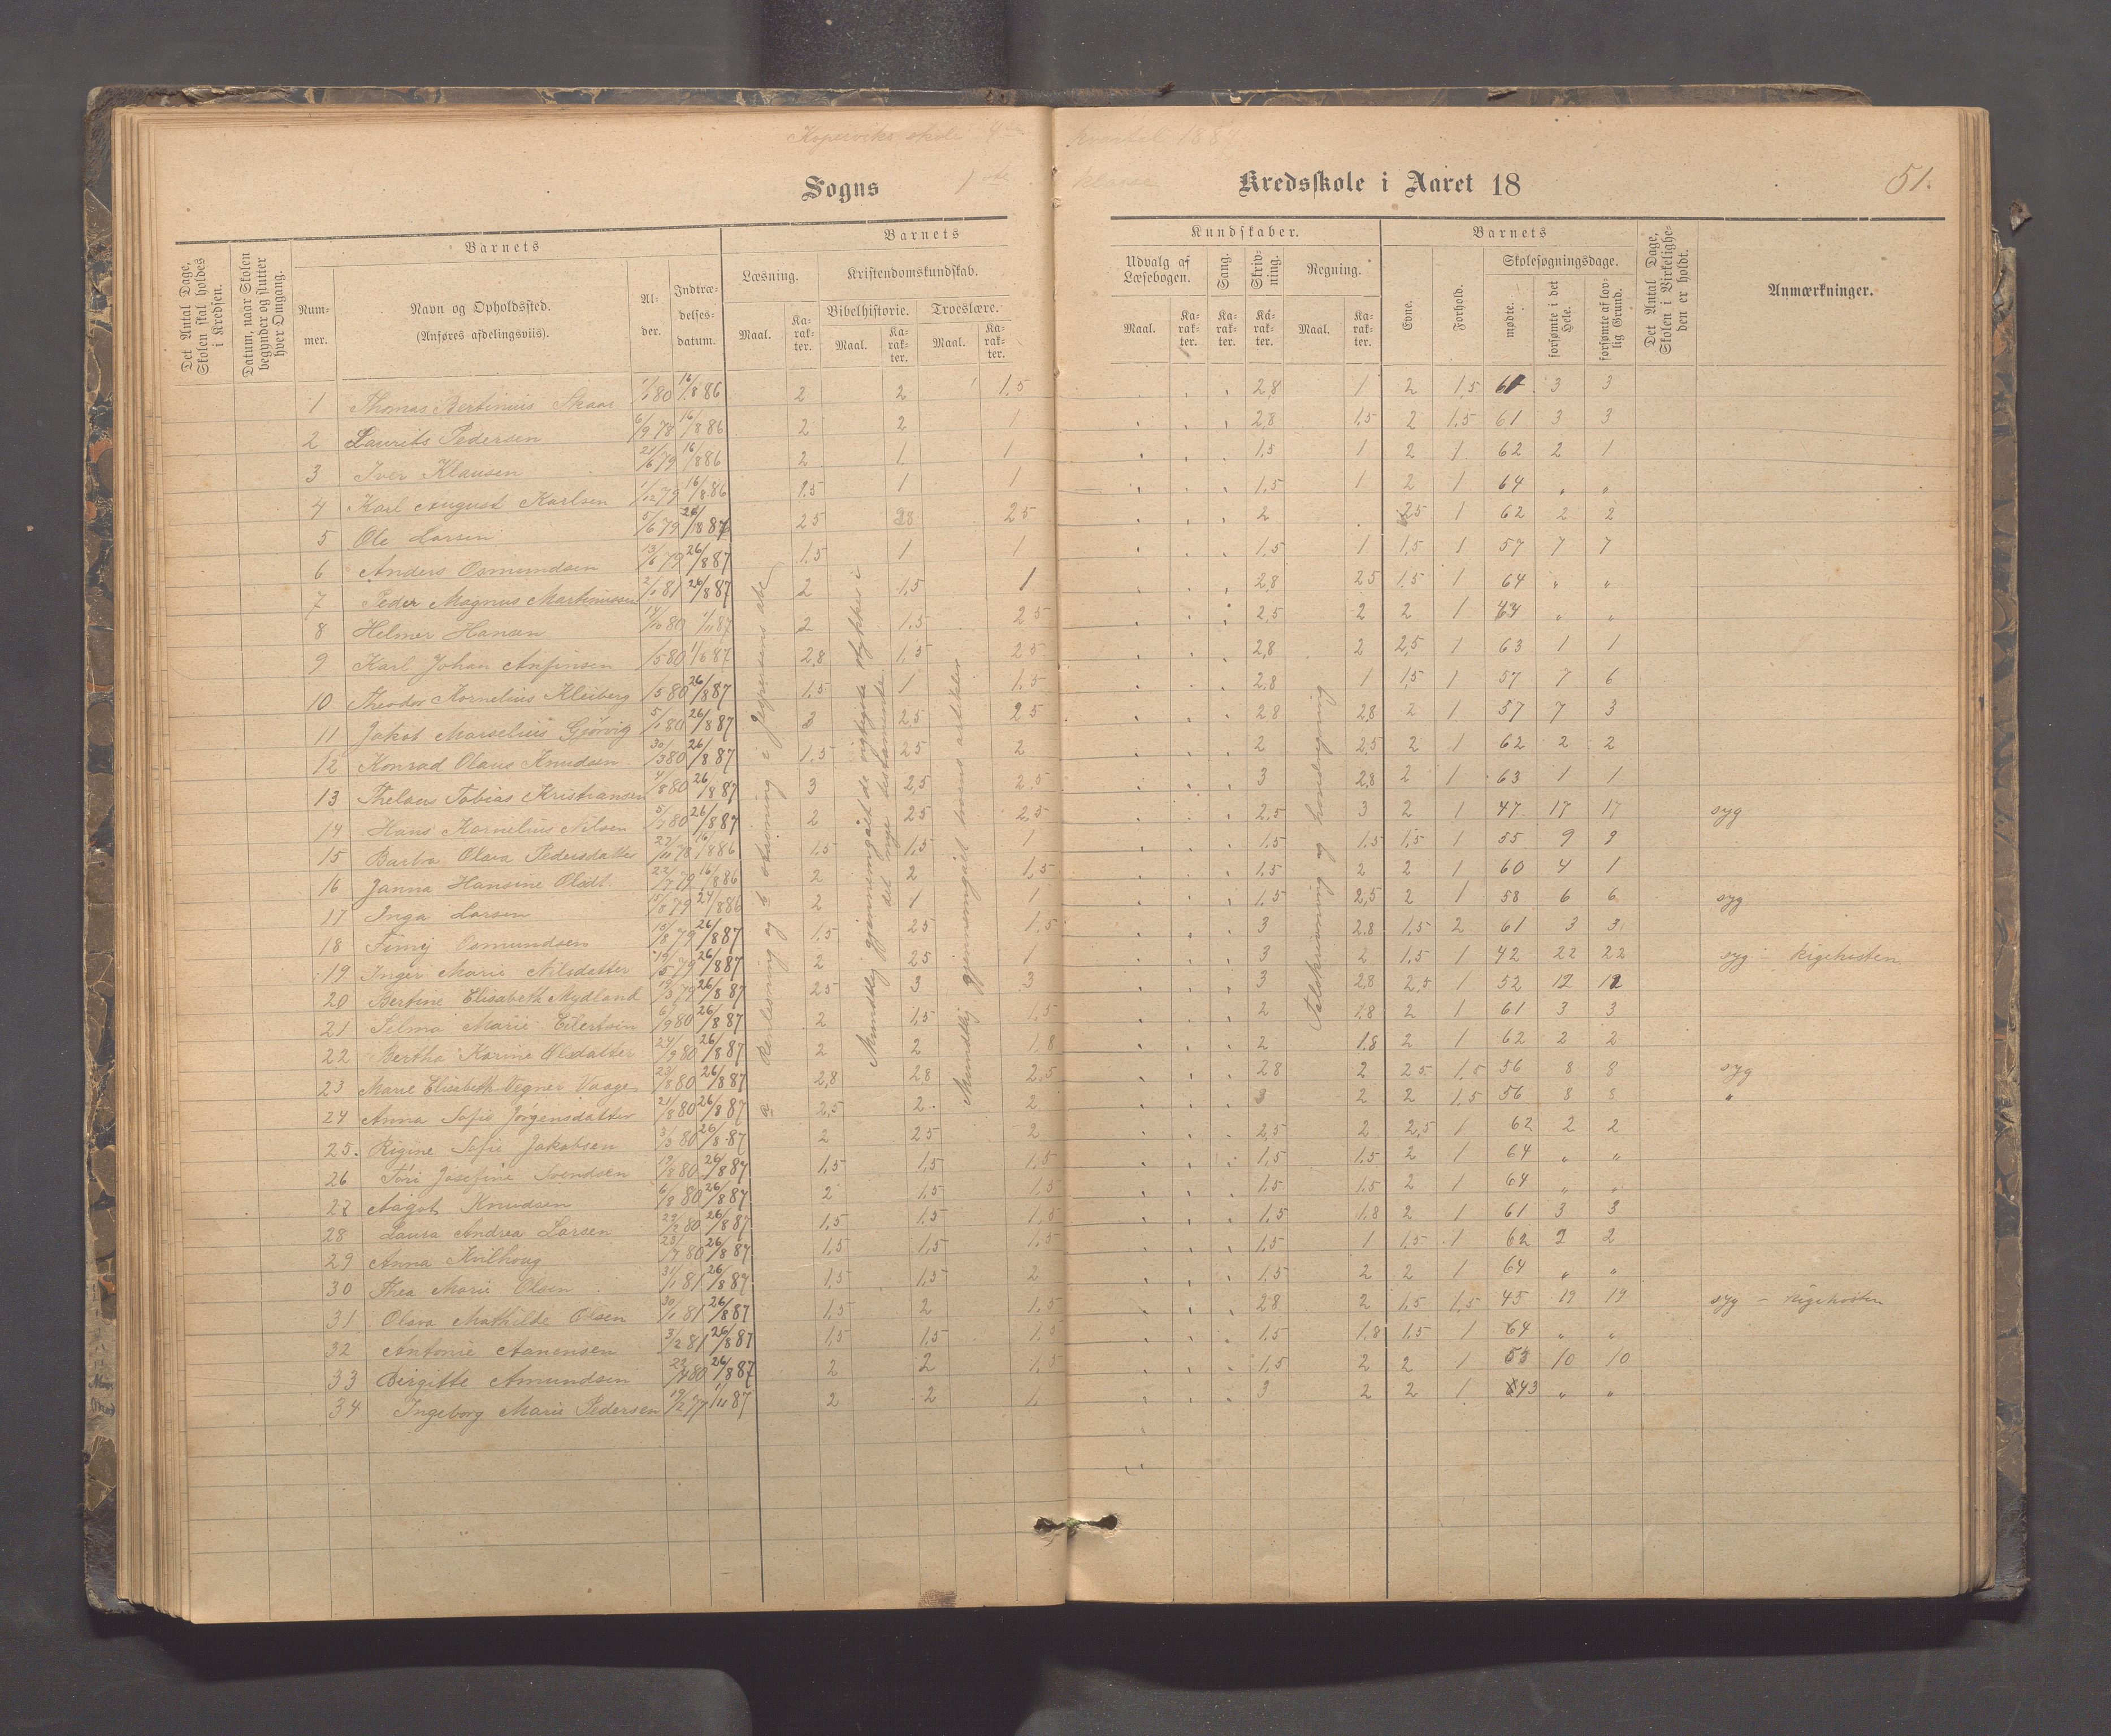 Koperviks skole 4de Kvartal 188
1ste Klasse
Sogns Kredsskole i Aaret 18 51.
Det Antal Dage, Skolen skal holdes i Kredsen.
Datum, naar Skolen begynder og slutter hver Omgang.
Barnets
Num-mer.
Navn og Opholdssted.
(Anføres afdelingsviis).
Al-der.
Indtræ-delses-datum.
Barnets Kundskaber.
Læsning.
Kristendomskundskab.
Bibelhistorie. Troeslære.
Maal. Ka-rak-ter. Maal. Ka-rak-ter. Maal. Ka-rak-ter.
Udvalg af Læsebogen. Sang. Skriv-ning. Regning.
Maal. Ka-rak-ter. Ka-rak-ter. Ka-rak-ter. Maal. Ka-rak-ter.
Barnets
Evne. Forhold.
Skolesøgningsdage.
mødte. forsømte i det Hele. forsømte af lov-lig Grund.
Det Antal Dage, Skolen i Virkelighe-den er holdt.
Anmærkninger.
1 Thomas Bertinius Skaar 1/1 80 16/8 86 2 2 1,5 2,8 1 2 1,5 61 3 3
2 Laurits Pedersen 6/9 78 16/8 86 2 2 1 2,8 1,5 2 1,5 61 3 3
3 Iver Klausen 21/6 79 16/8 86 2 1 1 1,5 1 2 1 62 2 1
4 Karl August Karlsen 1/12 79 16/8 86 1,5 1 1 1,5 1 2 1 64 " "
5 Ole Larsen 5/6 79 26/8 87 2,5 2,8 2,5 2 2,5 1 62 2 2
6 Anders Osmundsen 13/6 79 26/8 87 1,5 1 1 1,5 1 1,5 1 57 7 7
7 Peder Magnus Martinussen 2/1 81 26/8 87 2 1,5 1 2,8 2,5 1,5 1 64 " "
8 Helmer Hansen 14/10 80 1/11 87 2 1,5 2,5 2,5 2 2 1 64 " "
9 Karl Johan Anfinsen /5 80 1/6 87 2,8 1,5 2,5 2,8 2 2,5 1 63 1 1
10 Theodor Kornelius Kleiberg /5 80 26/8 87 1,5 1 1,5 2,8 1 1,5 1 57 7 6
11 Jakob Marselius Gjörvig 5/1 80 26/8 87 3 2,5 2,5 2,8 2,8 2 1 57 7 3
12 Konrad Olaus Knudsen 30/3 80 26/8 87 1,5 2,5 2 2 2,5 2 1 62 2 2
13 Thelsers Tobias Kristiansen 4/8 80 26/8 87 3 2,5 2,5 3 2,8 2 1 63 1 1
14 Hans Kornelius Nilsen 5/7 80 26/8 87 2 2,5 2,5 2,5 3 2 1 47 17 17 syg
15 Barbra Olava Pedersdatter 22/11 78 16/8 86 1,5 1,5 1 1,5 1,5 1,5 1 55 9 9
16 Janna Hansine Olsdt. 22/7 79 16/8 86 2 2 1,5 1,5 2 2 1 60 4 1
17 Inga Larsen 15/8 79 24/8 86 2 1 1 1,5 2,5 2 1 58 6 6 syg
18 Fimej Osmundsen 15/8 79 26/8 87 1,5 2,5 1,5 3 2,8 1,5 2 61 3 3
19 Inger Marie Nilsdatter 19/5 79 26/8 87 2 2,5 1 3 2 1,5 1 42 22 22 syg - kigehosten
20 Bertine Elisabeth Mydland 19/3 79 26/8 87 2,5 3 3 3 2,8 2,5 1 52 12 12
21 Selma Marie Eilertsen 6/9 80 26/8 87 2 1,5 1,5 2 1,8 2 1 61 3 3
22 Bertha Karine Olsdatter 24/9 80 26/8 87 2 2 1,8 2 1,8 2 1 62 2 2
23 Marie Elisabeth Vegner Vaage 23/8 80 26/8 87 2,8 2,8 2,5 2,8 2 2,5 1,5 56 8 8 syg
24 Anna Sofie Jörgensdatter 21/8 80 26/8 87 2,5 2 2 3 2 2 1,5 56 8 8 "
25. Rigine Sofie Jakobsen 3/3 80 26/8 87 2 2,5 2 2,5 2 2,5 1 62 2 2
26 Tori Josefine Svendsen 19/8 80 26/8 87 1,5 1,5 1,5 1,5 1,5 2 1 64 " "
27 Aagot Knudsen 6/8 80 26/8 87 2 1,5 1,5 1,5 1,5 2 1 64 " "
28 Laura Andrea Larsen 29/2 80 26/8 87 1,5 1,5 1,5 1,5 1,8 2 1 61 3 3
29 Anna Kvilhaug 23/7 80 26/8 87 1,5 1,5 1,5 1,5 1 1,5 1 62 2 2
30 Thea Marie Olsen 31/1 81 26/8 87 1,5 1,5 2 1,5 2 2 1 64 " "
31 Olava Mathilde Olsen 30/1 81 26/8 87 1,5 2 1,5 2,8 2 1,5 1,5 45 19 19 syg - kigehosten
32 Antonie Aanensen 3/2 81 26/8 87 1,5 1,5 1,5 1,5 1,8 1,5 1 64 " "
33 Birgitte Amundsen 22/4 80 26/8 87 2 2 1,5 1,5 2 2 1 53 10 10
34 Ingeborg Marie Pedersen 19/2 77 1/11 87 2 2 1 3 2 2 1 43 " "
Mundtlig gjennemgaaet de vigtigste stykker i det nye testamente.
Mundtlig gjennemgaaet troens artikler
Talskrivning og hovedregning